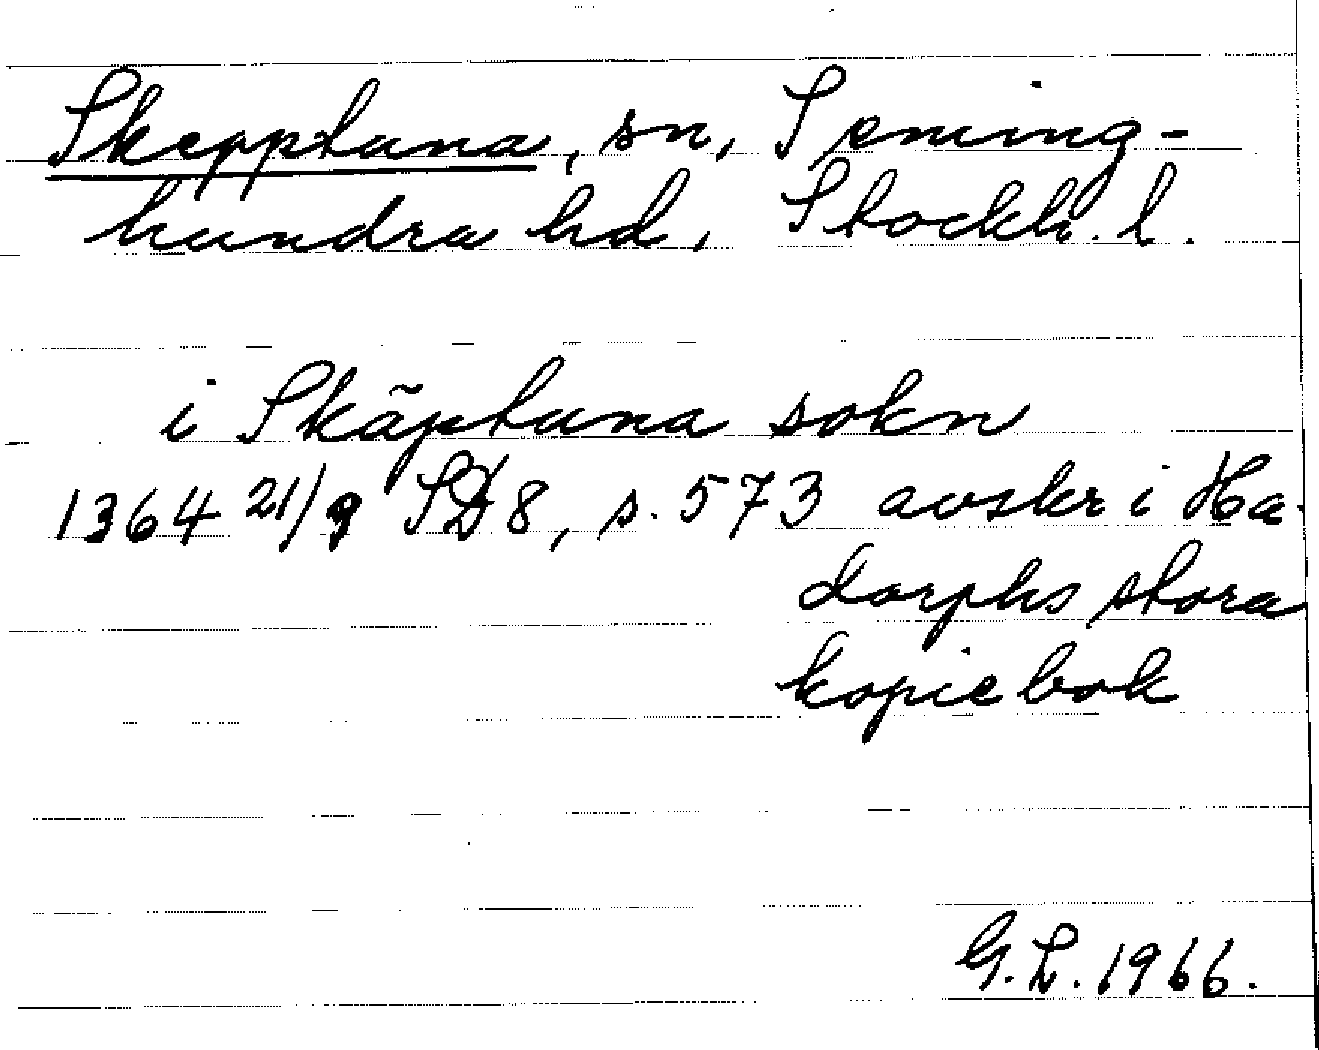 Skepptuna, sn, Seming-
hundra hd, Stockh. l.
i Skäptuna sokn
1364 21/9 SD 8, s. 573 avskr i Ha-
dorphs stora
kopiebok
G. L. 1966.